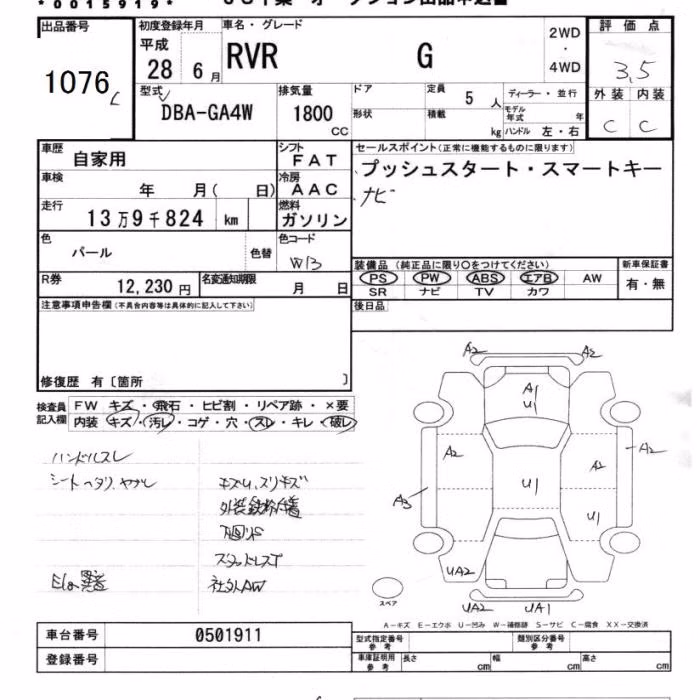 *0015919*
出品番号
1076
初度登録年月
平成
28 6月
車名・グレード
RVR G
2WD
・
4WD
評価点
3.5
外装 内装
C C
型式
DBA-GA4W
排気量
1800
CC
ドア
形状
定員
5 人
積載
kg
ディーラー・並行
モデル年式 年
ハンドル 左・右
車歴
自家用
シフト
FAT
車検
年 月( 日)
冷房
AAC
走行
13万9千824 km
燃料
ガソリン
色
パール
色替
色コード
WB
R券
12,230円
名変通知期限
月 日
セールスポイント(正常に機能するものに限ります)
プッシュスタート・スマートキー
ナビ
装備品 (純正品に限り○をつけてください)
新車保証書
PS PW ABS エアB AW
SR ナビ TV カワ
有・無
後日品
注意事項申告欄(不具合内容等は具体的に記入して下さい)
修復歴 有〔箇所 〕
検査員
記入欄
FW キズ・飛石・ヒビ割・リペア跡・×要
内装 キズ・汚レ・コゲ・穴・スレ・キレ・破レ
ハンドルスレ
シートヘタリ、ヤブレ
キズU、スリキズ
外装鉄粉付着
下回リS
スタッドレス
社外AW
A2 A2
A1
U1
A2 A2 A1
A3 U1 U1
UA2
UA2 UA1
スペア
A-キズ E-エクボ U-凹み W-補修跡 S-サビ C-腐食 XX-交換済
車台番号
0501911
登録番号
型式指定番号
参考
類別区分番号
参考
車庫証明用
参考
長さ cm 幅 cm 高さ cm